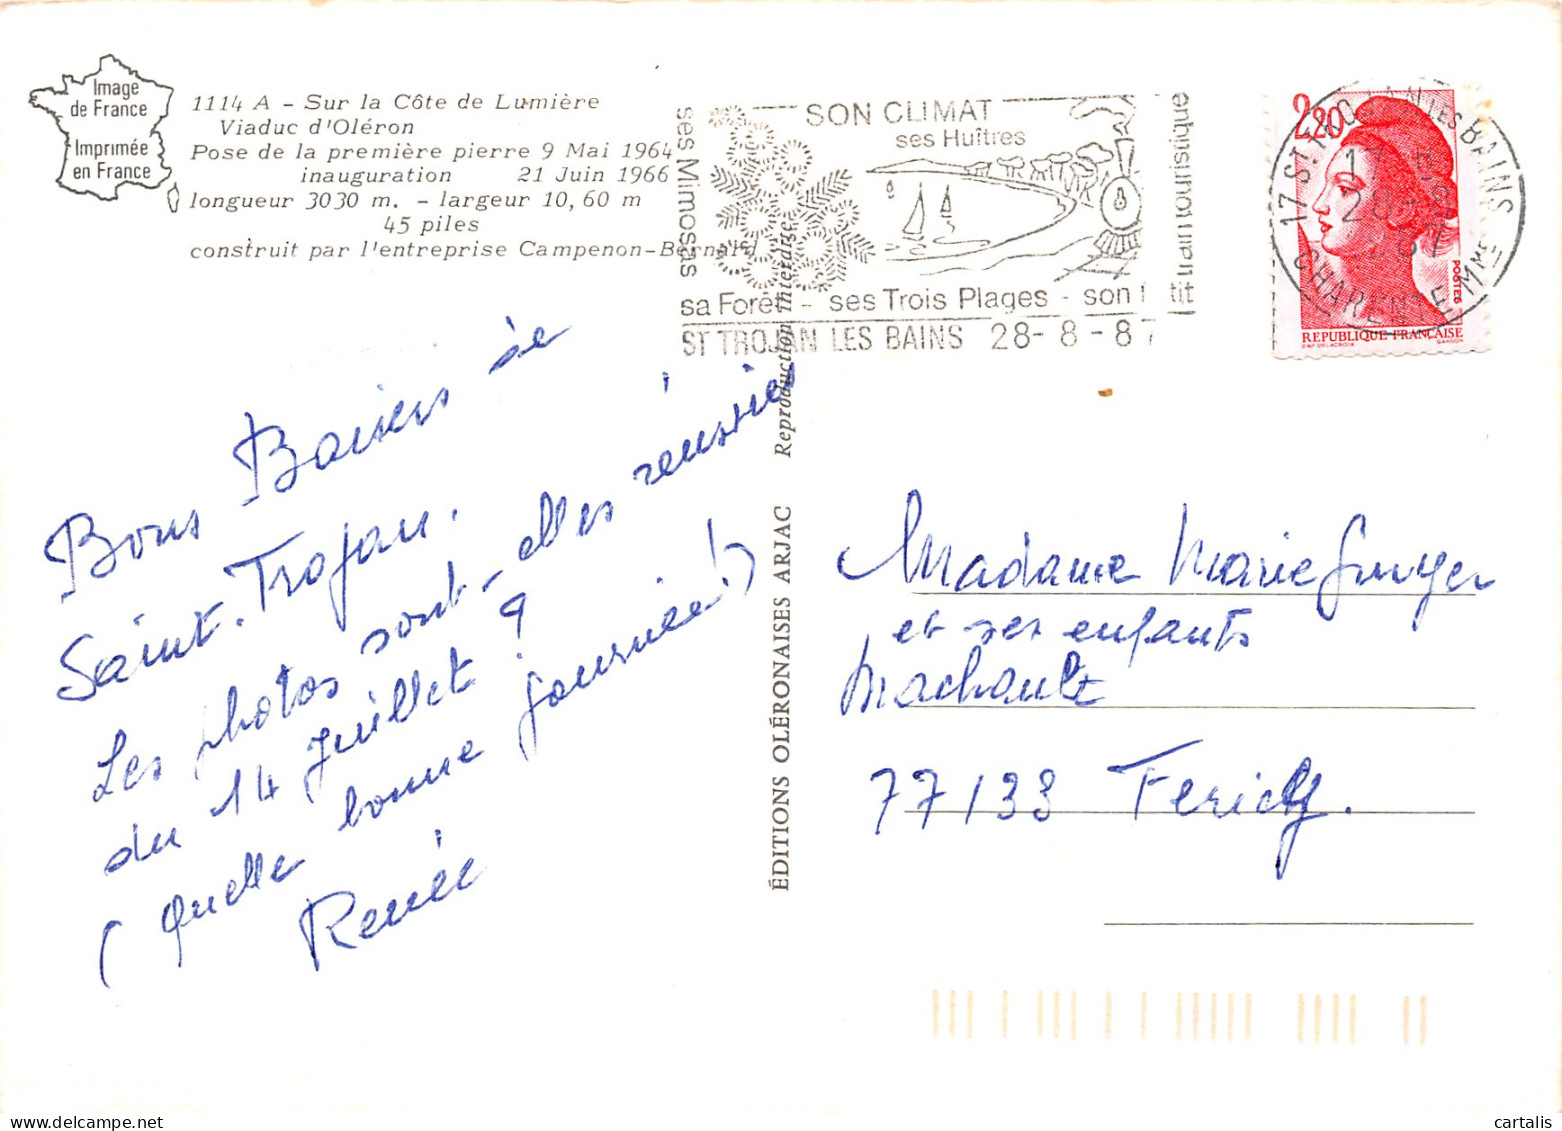 Image
de France
Imprimée
en France
1114 A - Sur la Côte de Lumière
Viaduc d'Oléron
Pose de la première pierre 9 Mai 1964
inauguration 21 Juin 1966
longueur 3030 m. - largeur 10,60 m
45 piles
construit par l'entreprise Campenon-Bernard
ses Mimosas
SON CLIMAT
ses Huîtres
train touristique
sa Forêt - ses Trois Plages - son petit
ST TROJAN LES BAINS 28-8-87
2,20
POSTES
REPUBLIQUE FRANÇAISE
D'AP. DELACROIX GANDON
17 ST TROJAN LES BAINS
28-8
87
CHARENTE Mme
Bons Baisers de
Saint-Trojan.
Les photos sont-elles réussies
du 14 Juillet ?
(Quelle bonne journée!)
Renée
ÉDITIONS OLÉRONAISES ARJAC Reproduction Interdite
Madame Marie
et ses enfants
Machault
77133 Fericy.
cartalis